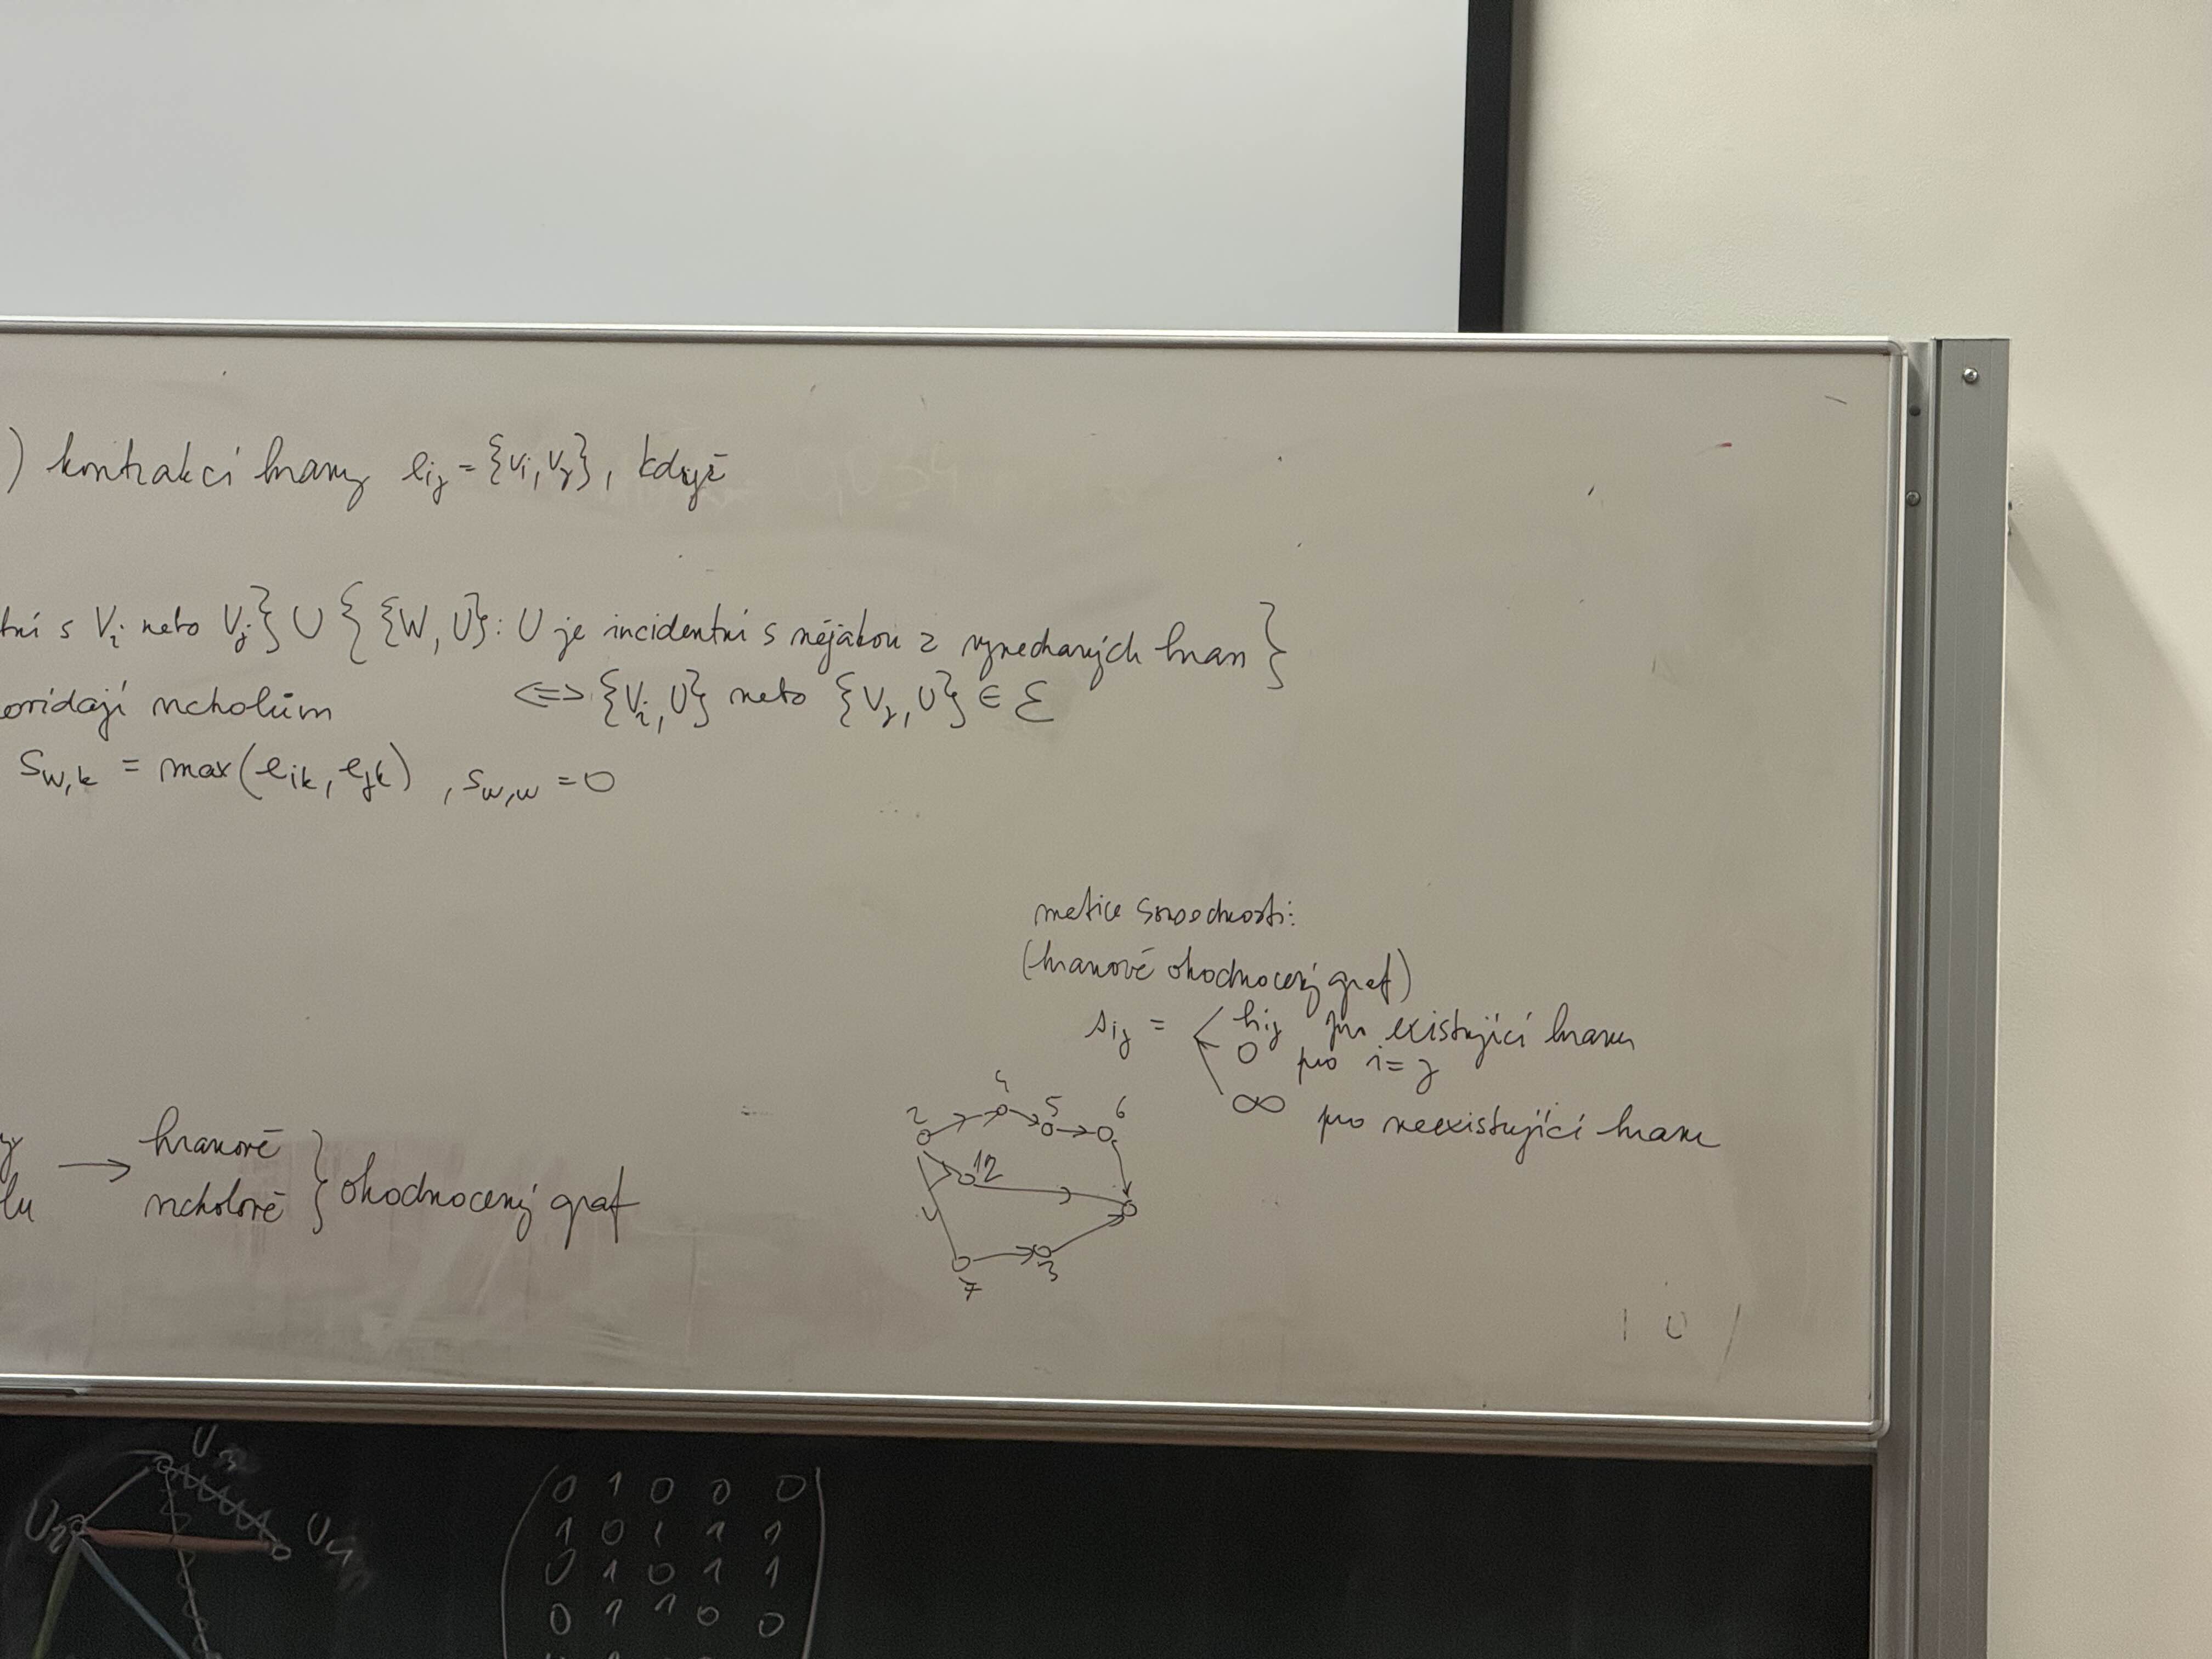 ) kontrakcí hrany eij = {vi, vj}, když
tní s Vi nebo Vj} ∪ { {W, U}: U je incidentní s nějakou z vynechaných hran }
⟺ {Vi, U} nebo {Vj, U} ∈ ℰ
ovídají vrcholům
sw,k = max(eik, ejk) , sw,w = 0
matice sousednosti:
(hranově ohodnocený graf)
sij = < hij pro existující hranu
0 pro i=j
∞ pro neexistující hranu
→ hranově
vrcholově } ohodnocený graf
2 4 5 6
12
7 3
U3
U2 U4
0 1 0 0 0
1 0 1 1 1
0 1 0 1 1
0 1 1 0 0